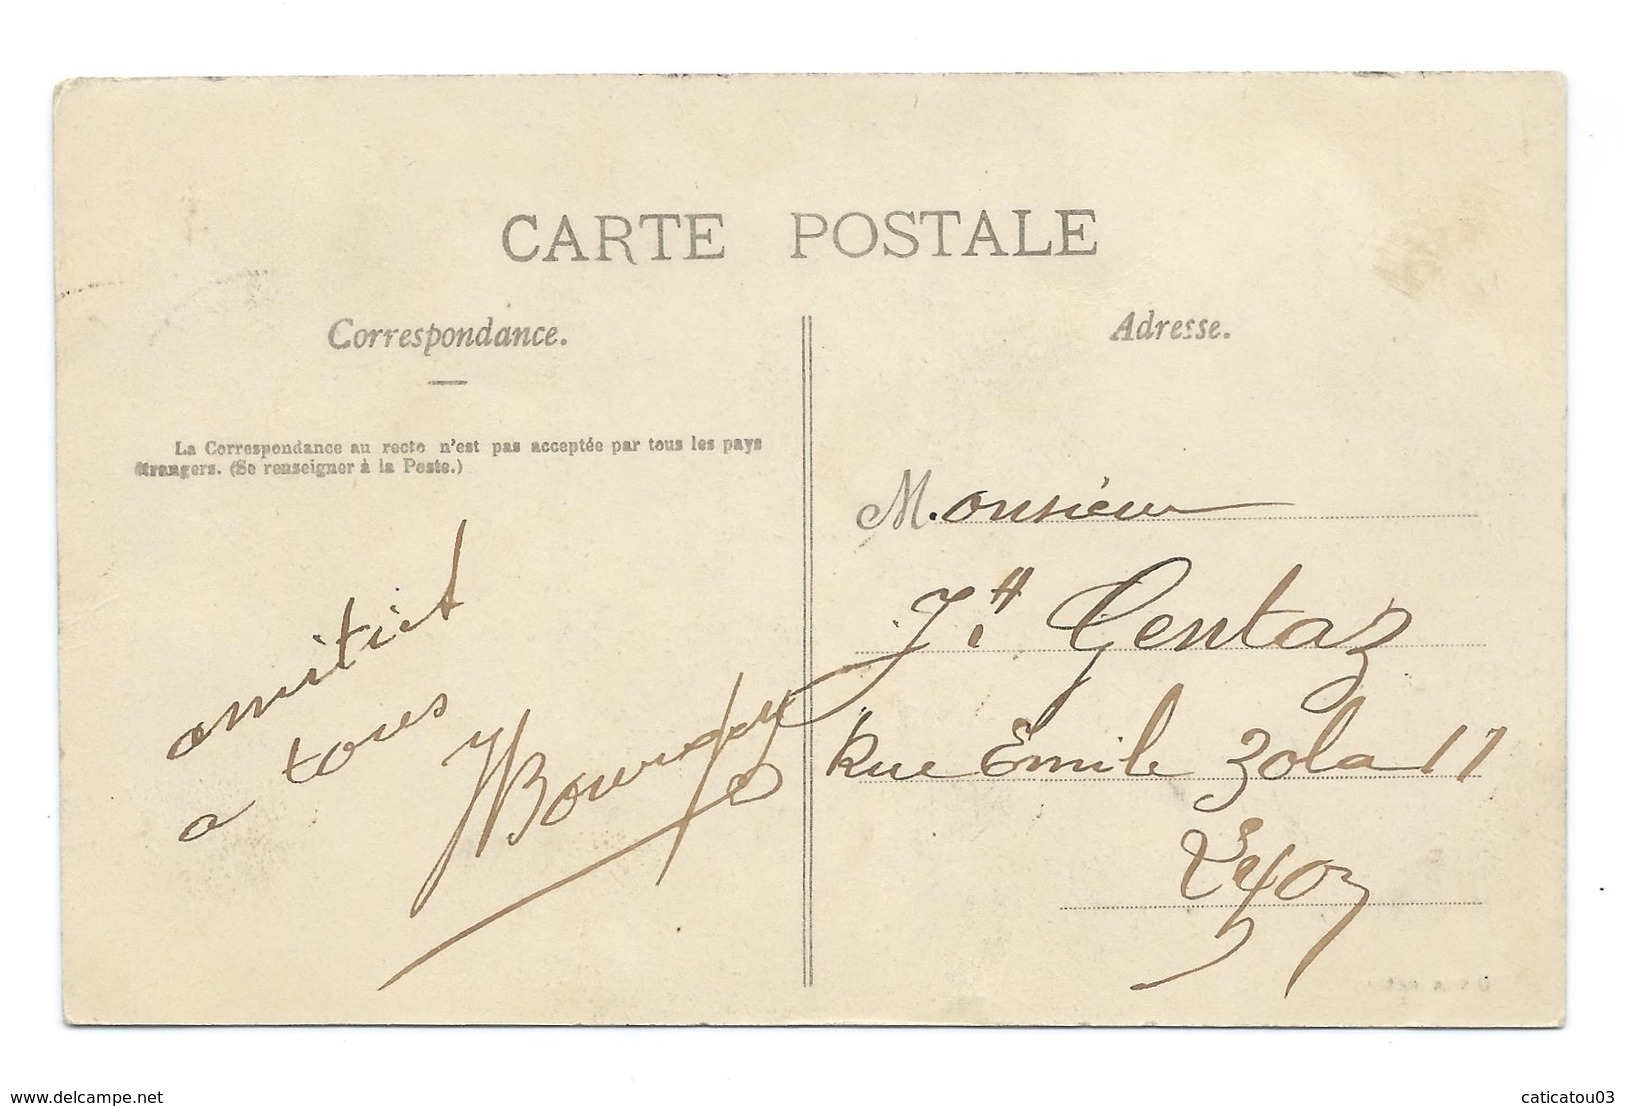 CARTE POSTALE
Correspondance.
La Correspondance au recto n'est pas acceptée par tous les pays
étrangers. (Se renseigner à la Poste.)
amitiet
a tous
Adresse.
Monsieur
Gentaz
Rue Emile Zola 11
Lyon
www.delcampe.net
caticatou03